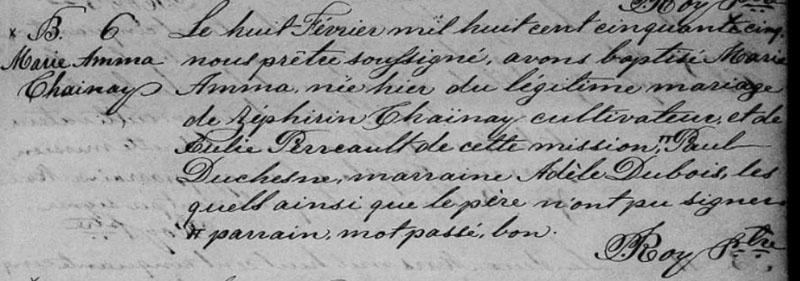 P. Roy Ptre
B. 6
Marie Amma
Chainay
Le huit Février mil huit cent cinquante cinq,
nous prêtre soussigné, avons baptisé Marie
Amma, née hier du légitime mariage
de Zéphirin Chaïnay cultivateur, et de
Julie Perreault de cette mission, # Paul
Duchesne, marraine Adèle Dubois, les
quels ainsi que le père n'ont pu signer
# parrain, mot passé, bon.
P. Roy Ptre